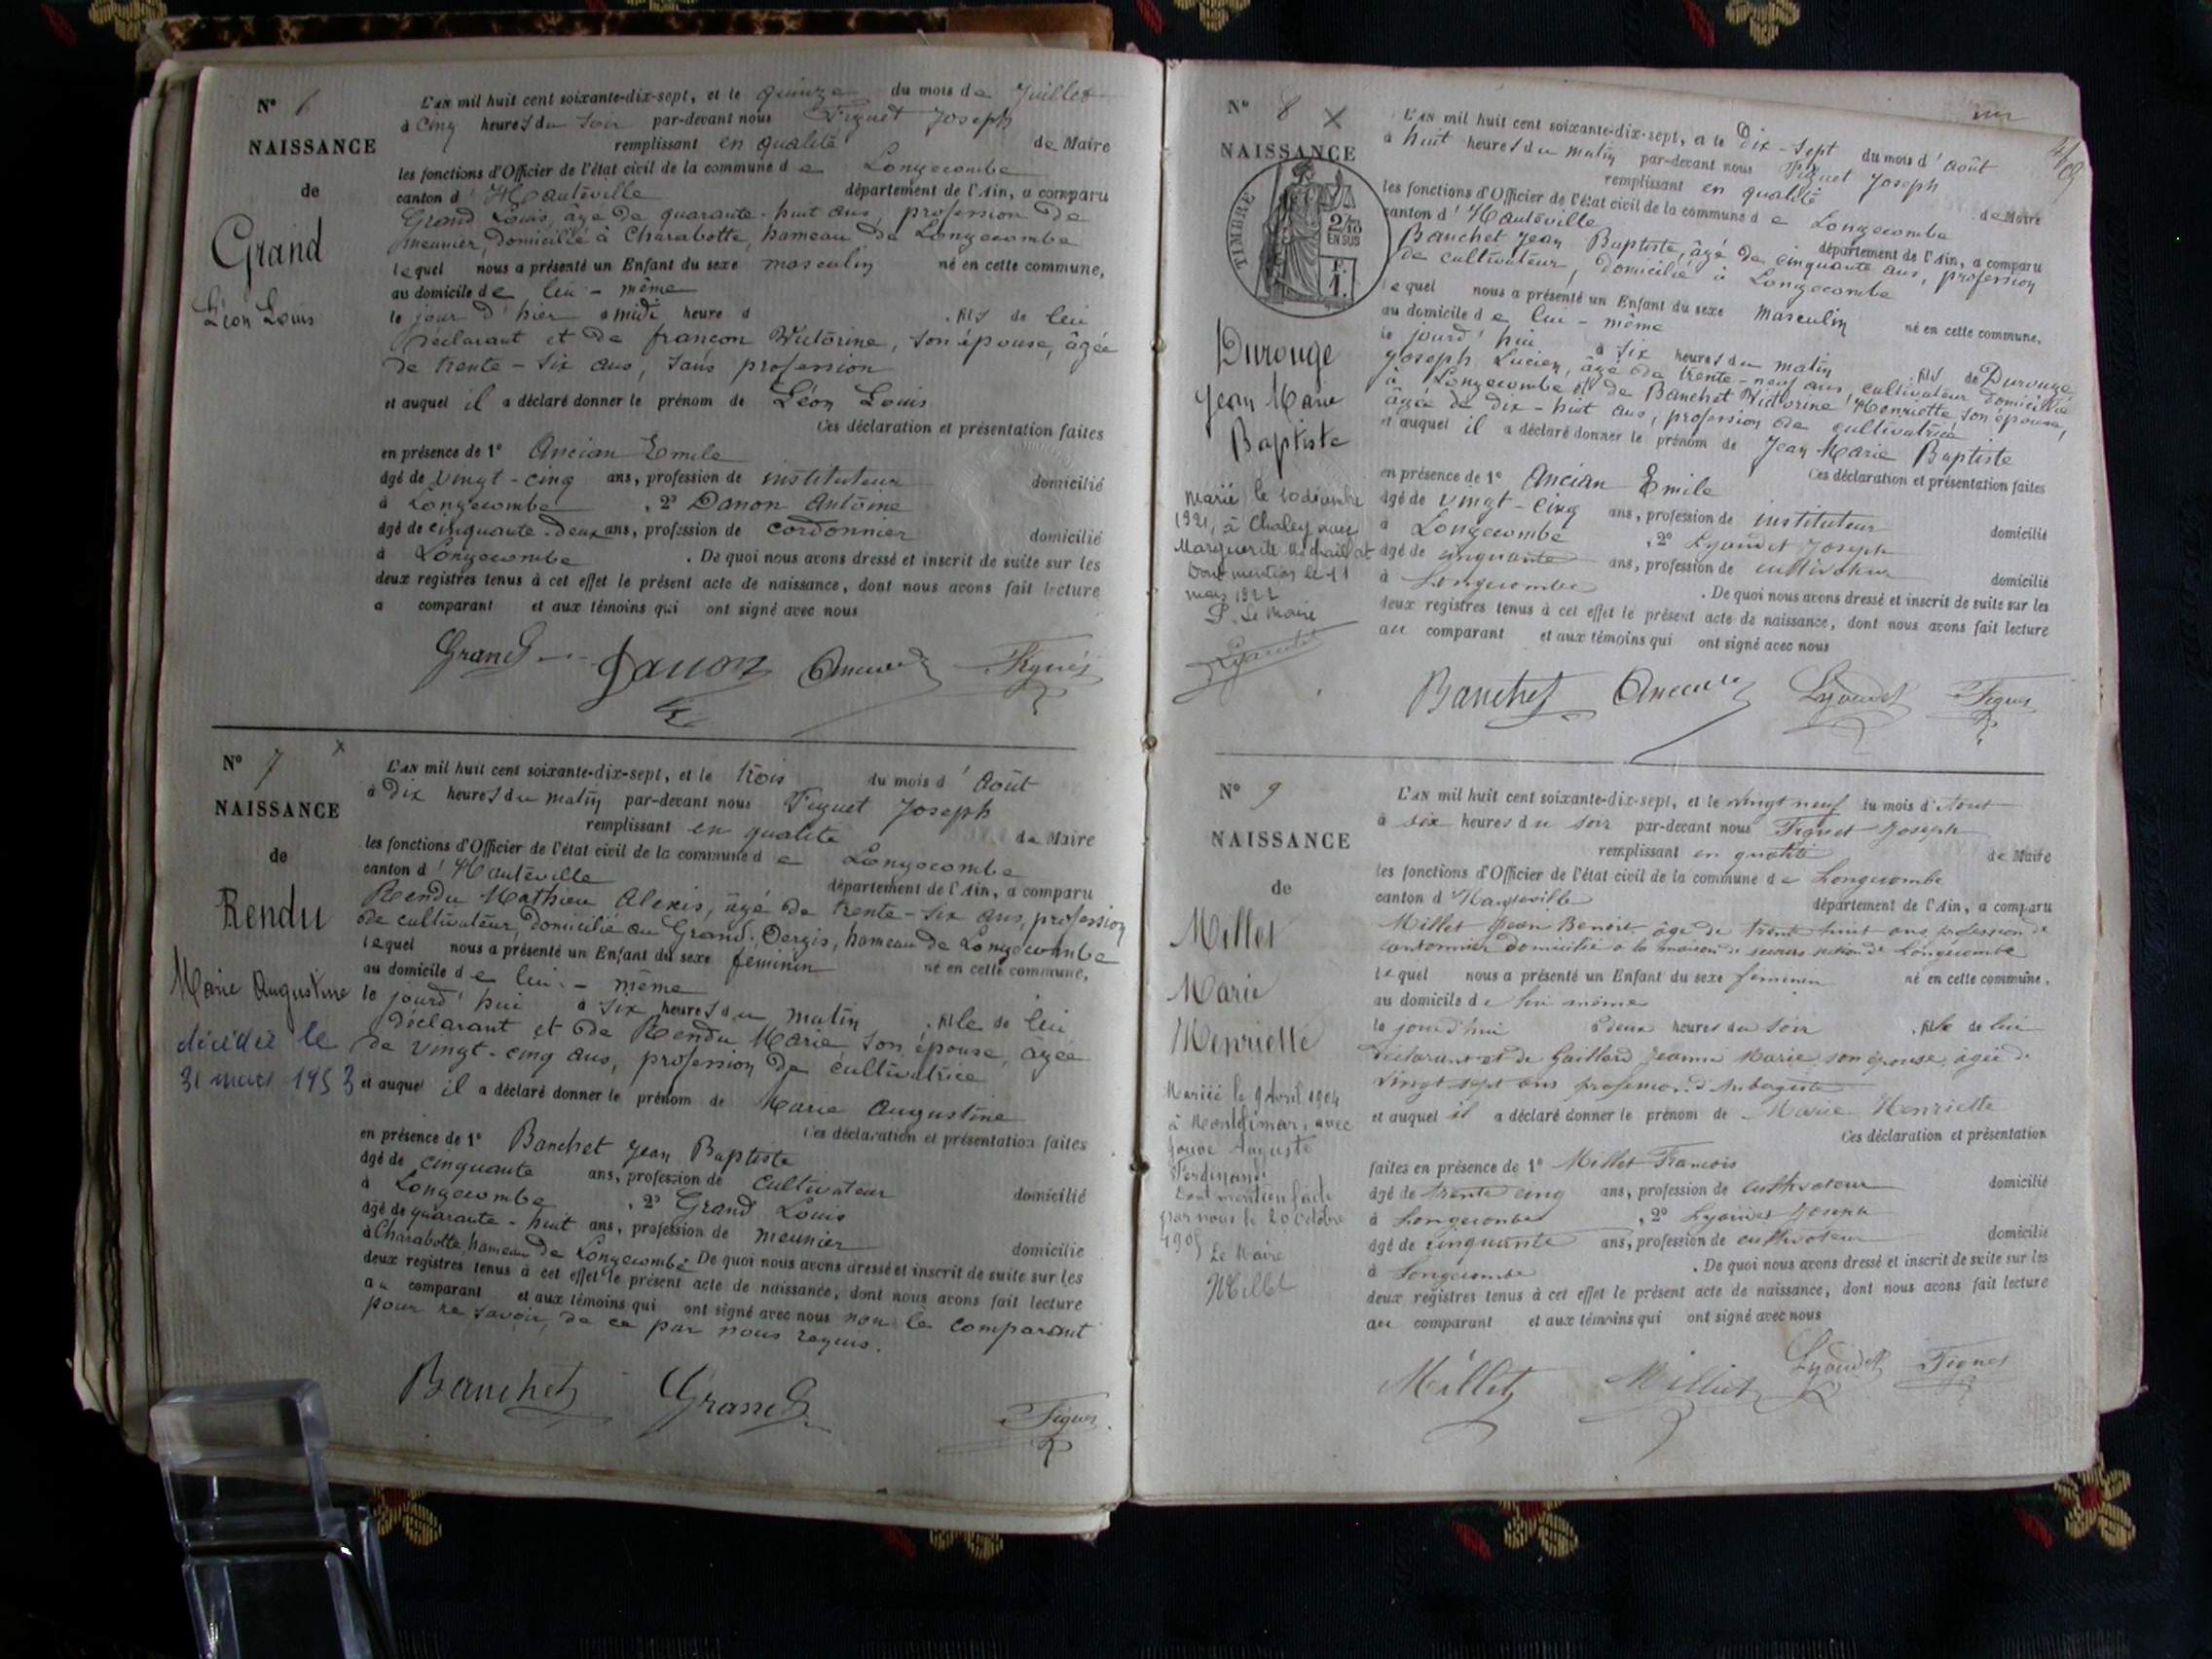 N° 6
NAISSANCE
de
Grand
Léon Louis
L'AN mil huit cent soixante-dix-sept, et le quinze du mois de Juillet
à cinq heures du soir par-devant nous Figuet Joseph
remplissant en qualité de Maire
les fonctions d'Officier de l'état civil de la commune de Longecombe
canton d'Hauteville département de l'Ain, a comparu
Grand Louis, âgé de quarante-huit ans, profession de
meunier, domicilié à Charabotte, hameau de Longecombe
lequel nous a présenté un Enfant du sexe masculin né en cette commune,
au domicile de lui-même
le jour d'hier à midi heure d . fils de lui
déclarant et de françon Victorine, son épouse, âgée
de trente-six ans, sans profession
et auquel il a déclaré donner le prénom de Léon Louis
Ces déclaration et présentation faites
en présence de 1° Ancian Emile
âgé de vingt-cinq ans, profession de instituteur domicilié
à Longecombe , 2° Danon Antoine
âgé de cinquante-deux ans, profession de cordonnier domicilié
à Longecombe . De quoi nous avons dressé et inscrit de suite sur les
deux registres tenus à cet effet le présent acte de naissance, dont nous avons fait lecture
a comparant et aux témoins qui ont signé avec nous
Grand Danon Ancian Figuet
N° 7 x
NAISSANCE
de
Rendu
Marie Augustine
décédée le
31 mars 1953
L'AN mil huit cent soixante-dix-sept, et le trois du mois d'Août
à dix heures du matin par-devant nous Figuet Joseph
remplissant en qualité de Maire
les fonctions d'Officier de l'état civil de la commune de Longecombe
canton d'Hauteville département de l'Ain, a comparu
Rendu Mathieu Alexis, âgé de trente-six ans, profession
de cultivateur, domicilié au Grand-Dergis, hameau de Longecombe
lequel nous a présenté un Enfant du sexe féminin né en cette commune,
au domicile de lui-même
le jourd'hui à six heures du matin . fille de lui
déclarant et de Rendu Marie son épouse, âgée
de vingt-cinq ans, profession de cultivatrice
et auquel il a déclaré donner le prénom de Marie Augustine
Ces déclaration et présentation faites
en présence de 1° Banchet Jean Baptiste
âgé de cinquante ans, profession de cultivateur domicilié
à Longecombe , 2° Grand Louis
âgé de quarante-huit ans, profession de meunier domicilié
à Charabotte, hameau de Longecombe De quoi nous avons dressé et inscrit de suite sur les
deux registres tenus à cet effet le présent acte de naissance, dont nous avons fait lecture
au comparant et aux témoins qui ont signé avec nous non le comparant
pour ne savoir, de ce par nous requis.
Banchet Grand Figuet
N° 8 x
NAISSANCE
TIMBRE
2/10
EN SUS
F.
1.
Durouge
Jean Marie
Baptiste
Marié le 10 décembre
1921, à Chaley avec
Marguerite
Dont mention le 11
mars 1922
P. Le Maire
L'AN mil huit cent soixante-dix-sept, et le Dix-sept du mois d'Août
à huit heures du matin par-devant nous Figuet Joseph
remplissant en qualité de Maire
les fonctions d'Officier de l'état civil de la commune de Longecombe
canton d'Hauteville département de l'Ain, a comparu
Banchet Jean Baptiste âgé de cinquante ans, profession
de cultivateur, domicilié à Longecombe
lequel nous a présenté un Enfant du sexe Masculin né en cette commune,
au domicile de lui-même
le jourd'hui à six heures du matin . fils de Durouge
Joseph Lucien, âgé de trente-neuf ans, cultivateur domicilié
à Longecombe et de Banchet Victorine Henriette son épouse,
âgée de dix-huit ans, profession de cultivatrice
et auquel il a déclaré donner le prénom de Jean Marie Baptiste
Ces déclaration et présentation faites
en présence de 1° Ancian Emile
âgé de vingt-cinq ans, profession de instituteur domicilié
à Longecombe , 2° Lyaudet Joseph
âgé de cinquante ans, profession de cultivateur domicilié
à Longecombe . De quoi nous avons dressé et inscrit de suite sur les
deux registres tenus à cet effet le présent acte de naissance, dont nous avons fait lecture
au comparant et aux témoins qui ont signé avec nous
Banchet Ancian Lyaudet Figuet
N° 9
NAISSANCE
de
Millet
Marie
Henriette
Mariée le 9 Avril 1904
à Montélimar, avec
Jouve Auguste
Ferdinand
Dont mention faite
par nous le 20 Octobre
1905
Le Maire
Millet
L'AN mil huit cent soixante-dix-sept, et le vingt neuf du mois d'Août
à six heures du soir par-devant nous Figuet Joseph
remplissant en qualité de Maire
les fonctions d'Officier de l'état civil de la commune de Longecombe
canton d Hauteville département de l'Ain, a comparu
Millet Jean Benoit âgé de trente huit ans, profession de
cantonnier domicilié à la maison de secours section de Longecombe
lequel nous a présenté un Enfant du sexe féminin né en cette commune,
au domicile de lui même
le jourd'hui à deux heures du soir . fille de lui
déclarant et de Gaillard Jeanne Marie, son épouse, âgée de
vingt sept ans profession d'Aubergiste
et auquel il a déclaré donner le prénom de Marie Henriette
Ces déclaration et présentation
faites en présence de 1° Millet Francois
âgé de trente cinq ans, profession de cultivateur domicilié
à Longecombe , 2° Lyaudet Joseph
âgé de cinquante ans, profession de cultivateur domicilié
à Longecombe . De quoi nous avons dressé et inscrit de suite sur les
deux registres tenus à cet effet le présent acte de naissance, dont nous avons fait lecture
au comparant et aux témoins qui ont signé avec nous
Millet Millet Lyaudet Figuet